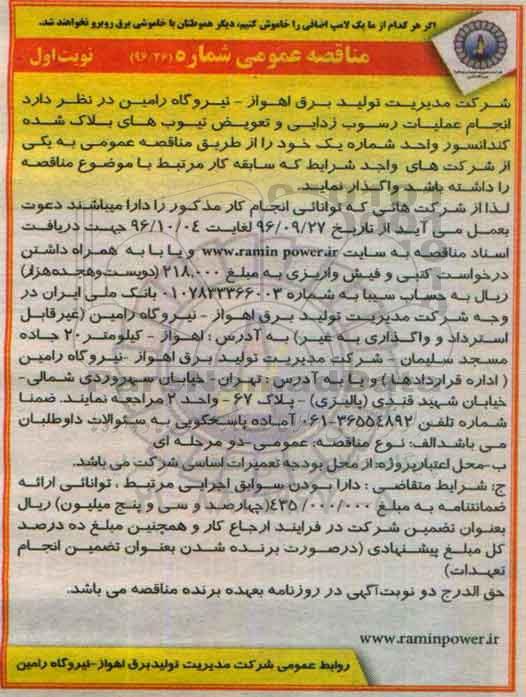 اگر هر کدام از ما یک لامپ اضافی را خاموش کنیم، دیگر هموطنان با خاموشی برق روبرو نخواهند شد.
مناقصه عمومی شماره (۹۶/۲۶) نوبت اول
شرکت مدیریت تولید برق اهواز - نیروگاه رامین در نظر دارد
انجام عملیات رسوب زدایی و تعویض تیوب های بلاک شده
کندانسور واحد شماره یک خود را از طریق مناقصه عمومی به یکی
از شرکت های واجد شرایط که سابقه کار مرتبط با موضوع مناقصه
را داشته باشد واگذار نماید.
لذا از شرکت هائی که توانائی انجام کار مذکور را دارا میباشند دعوت
بعمل می آید از تاریخ ۹۶/۰۹/۲۷ لغایت ۹۶/۱۰/۰۴ جهت دریافت
اسناد مناقصه به سایت www.ramin power.ir و یا با به همراه داشتن
درخواست کتبی و فیش واریزی به مبلغ ۲۱۸.۰۰۰ (دویست‌وهجده‌هزار)
ریال به حساب سیبا به شماره ۰۱۰۷۸۳۳۳۶۶۰۰۳ بانک ملی ایران در
وجه شرکت مدیریت تولید برق اهواز - نیروگاه رامین (غیرقابل
استرداد و واگذاری به غیر) به آدرس : اهواز - کیلومتر ۲۰ جاده
مسجد سلیمان - شرکت مدیریت تولید برق اهواز - نیروگاه رامین
( اداره قراردادها ) و یا به آدرس : تهران - خیابان سهروردی شمالی-
خیابان شهید قندی (پالیزی) - پلاک ۶۷- واحد ۲ مراجعه نمایند. ضمنا
شماره تلفن ۳۶۵۵۴۸۹۲-۰۶۱ آماده پاسخگویی به سئوالات داوطلبان
می باشد.الف: نوع مناقصه: عمومی-دو مرحله ای
ب-محل اعتبارپروژه: از محل بودجه تعمیرات اساسی شرکت می باشد.
ج: شرایط متقاضی : دارا بودن سوابق اجرایی مرتبط ، توانائی ارائه
ضمانتنامه به مبلغ ۴۳۵/۰۰۰/۰۰۰(چهارصد و سی و پنج میلیون) ریال
بعنوان تضمین شرکت در فرایند ارجاع کار و همچنین مبلغ ده درصد
کل مبلغ پیشنهادی (درصورت برنده شدن بعنوان تضمین انجام
تعهدات)
حق الدرج دو نوبت‌آگهی در روزنامه بعهده برنده مناقصه می باشد.
www.raminpower.ir
روابط عمومی شرکت مدیریت تولیدبرق اهواز-نیروگاه رامین